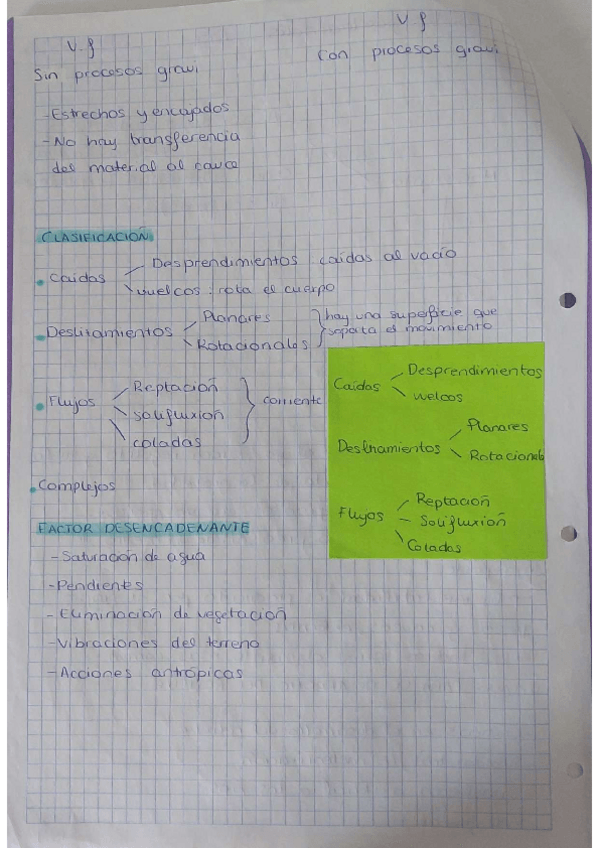 V.f
Sin procesos gravi
V.f
Con procesos gravi
-Estrechos y encajados
-No hay transferencia
del material al cauce
CLASIFICACIÓN
Caidas
Desprendimientos : caidas al vacio
vuelcos : rota el cuerpo
Deslizamientos
Planares
Rotacionales
hay una superficie que
separa el movimiento
Flujos
Reptación
solifluxión
coladas
corriente
Complejos
Caidas
Desprendimientos
vuelcos
Deslizamientos
Planares
Rotacionale
Flujos
Reptación
Solifluxión
Coladas
FACTOR DESENCADENANTE
-Saturación de agua
-Pendientes
-Eliminación de vegetación
-Vibraciones del terreno
-Acciones antrópicas